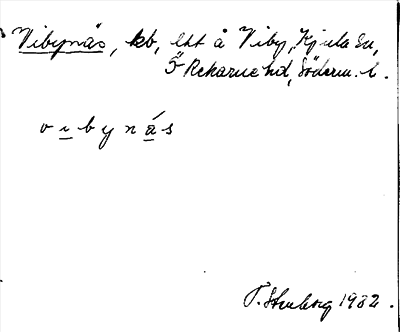 Vibynäs, kb, lht å Viby, Kjula sn,
Ö Rekarne hd, Söderm. l.
v i b y n á s
T. Stenberg 1932.